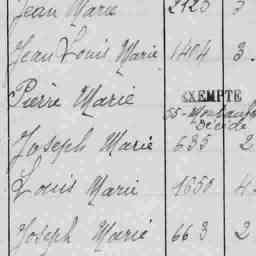 Jean Marie 2123 3
Jean Louis Marie 1484 3
Pierre Marie EXEMPTE
Décédé
Joseph Marie 635 2
Louis Marie 1650 4
Joseph Marie 663 2